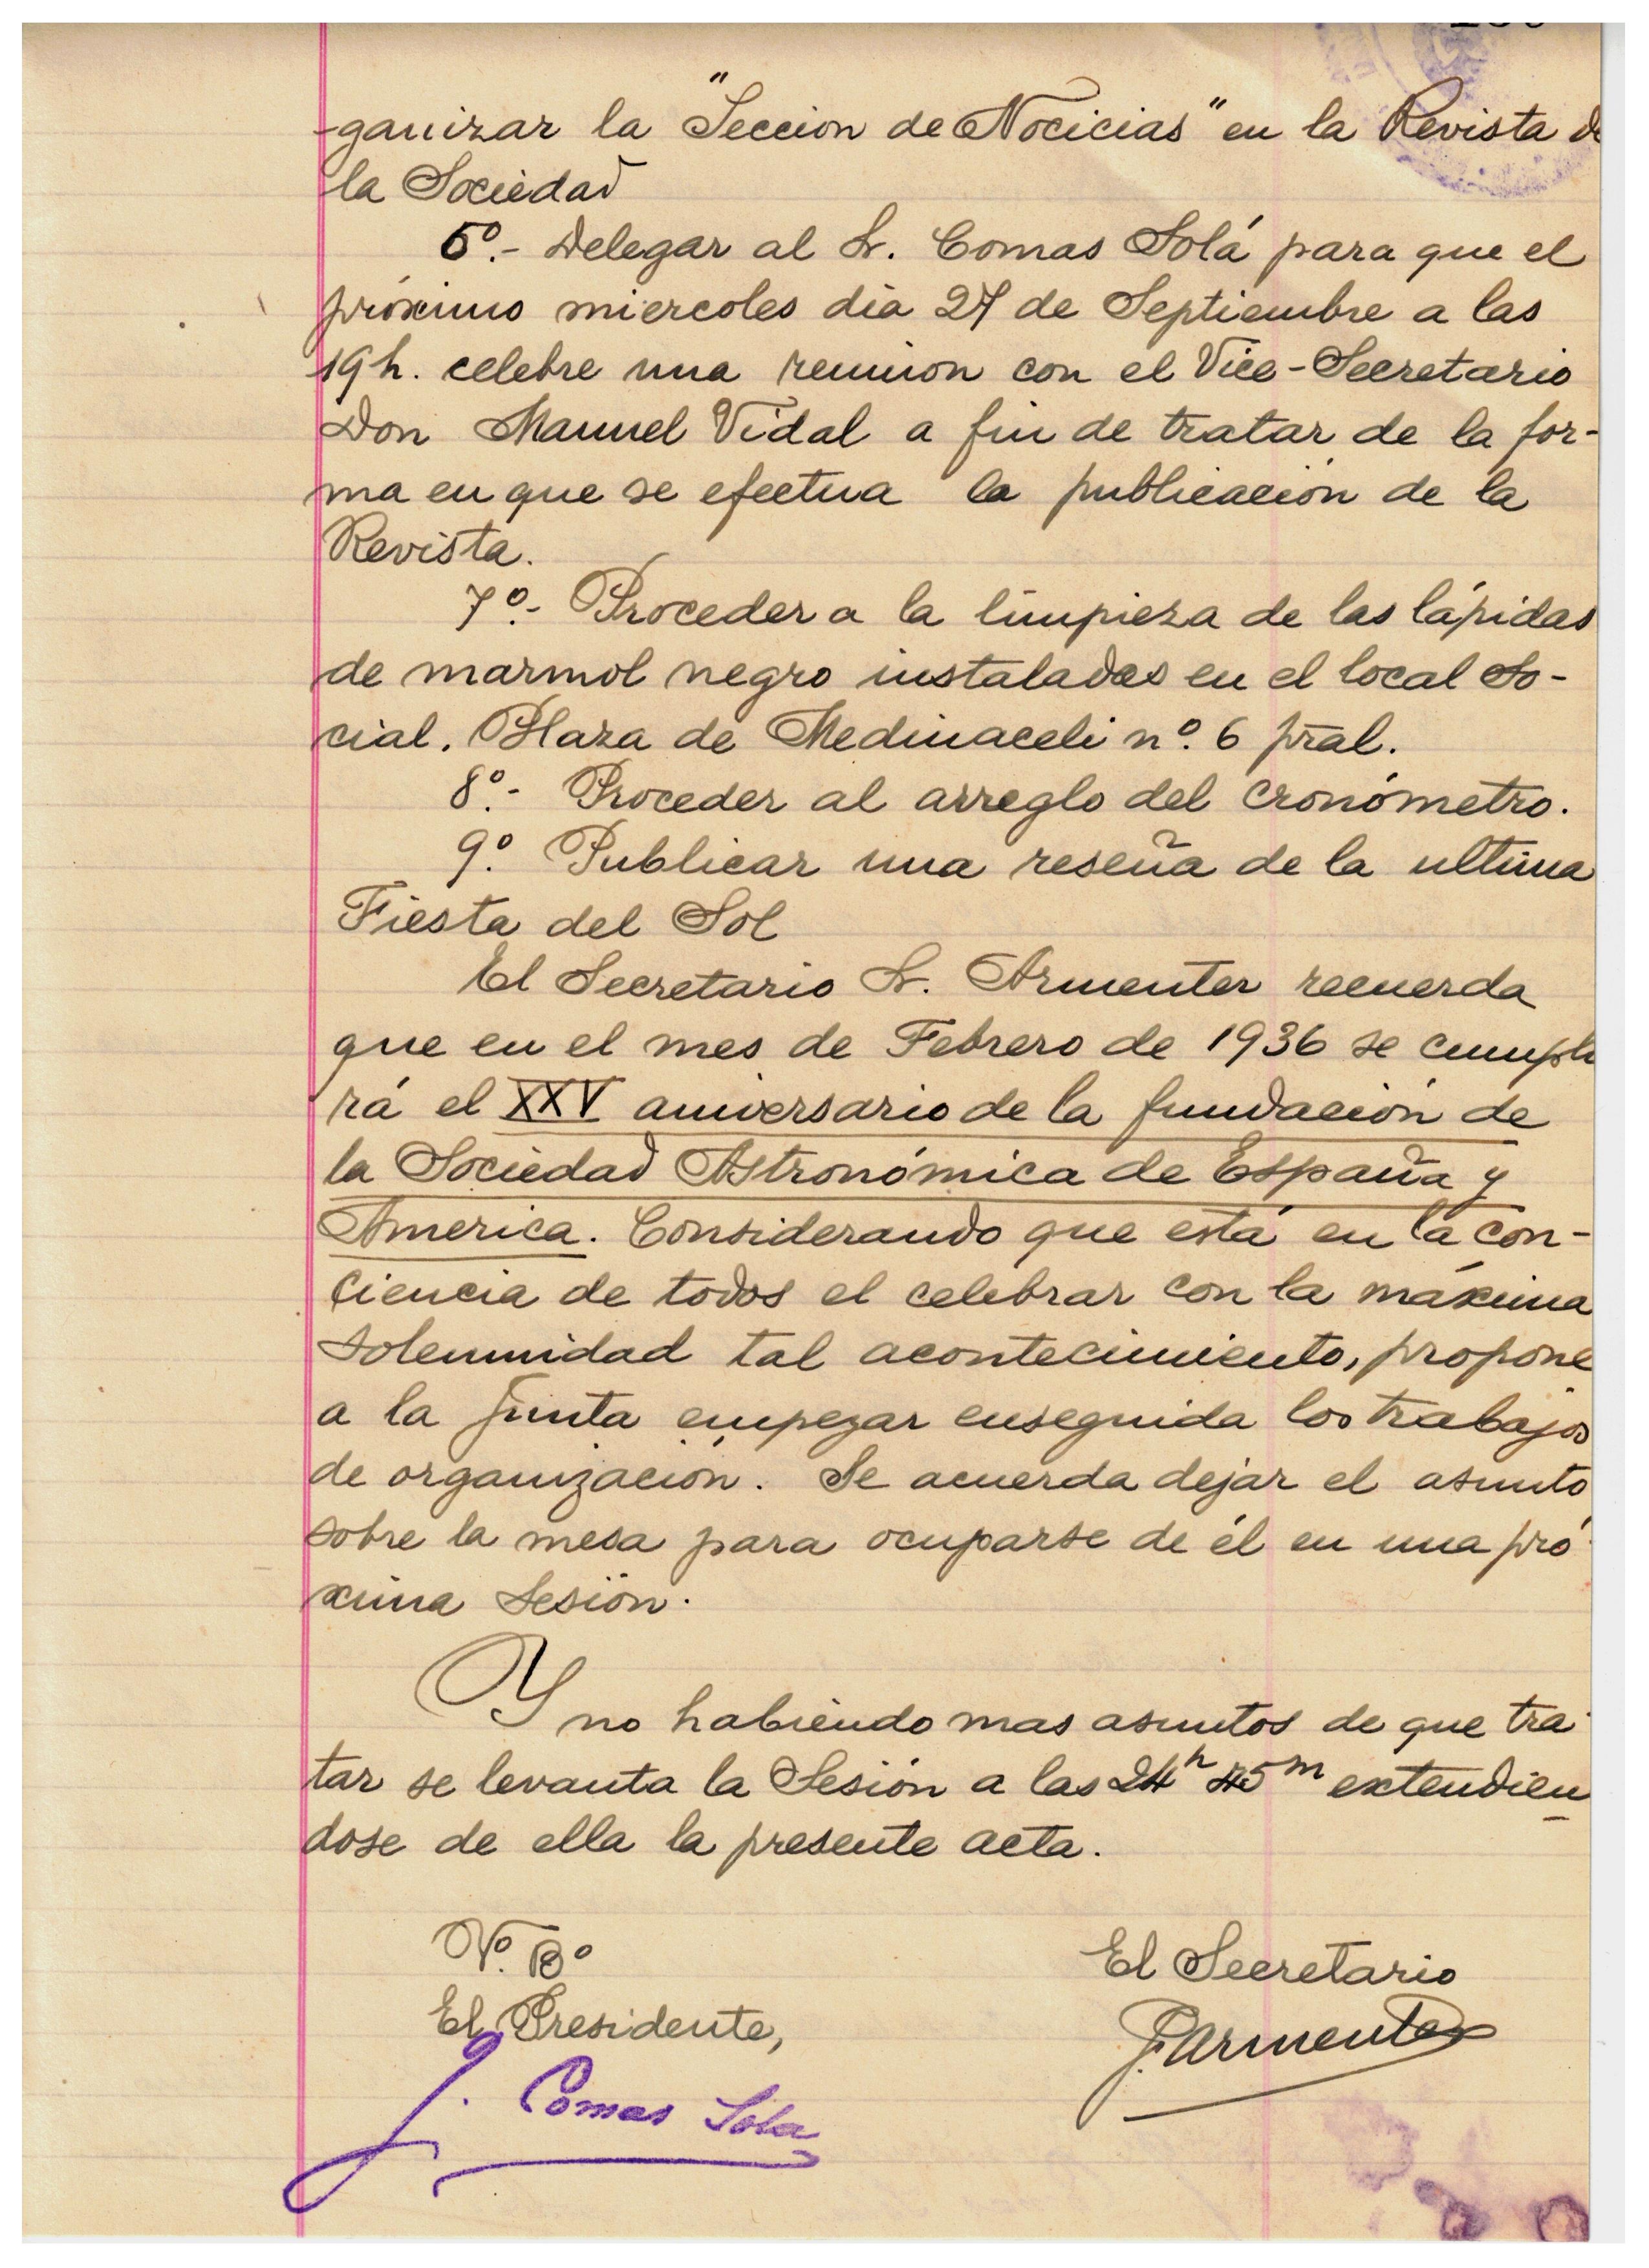 -ganizar la "Seccion de Nocicias" en la Revista de
la Sociedad
6º.- Delegar al Sr. Comas Solá para que el
próximo miercoles dia 27 de Septiembre a las
19 h. celebre una reunion con el Vice-Secretario
Don Manuel Vidal a fin de tratar de la for-
ma en que se efectua la publicación de la
Revista.
7º.- Proceder a la limpieza de las lápidas
de marmol negro instalados en el local So-
cial. Plaza de Medinaceli nº. 6 pral.
8º.- Proceder al arreglo del cronómetro.
9º. Publicar una reseña de la ultima
Fiesta del Sol
El Secretario Sr. Armenter recuerda
que en el mes de Febrero de 1936 se cumpli
rá el XXV aniversario de la fundación de
la Sociedad Astronómica de España y
America. Considerando que está en la con-
ciencia de todos el celebrar con la máxima
solemnidad tal acontecimiento, propone
a la Junta empezar enseguida los trabajos
de organización. Se acuerda dejar el asunto
sobre la mesa para ocuparse de él en una pró
xima Sesión.
Y no habiendo mas asuntos de que tra
tar se levanta la Sesión a las extendien
dose de ella la presente acta.
Vº. Bº
El Presidente,
J. Comas Sola
El Secretario
F. Armenter